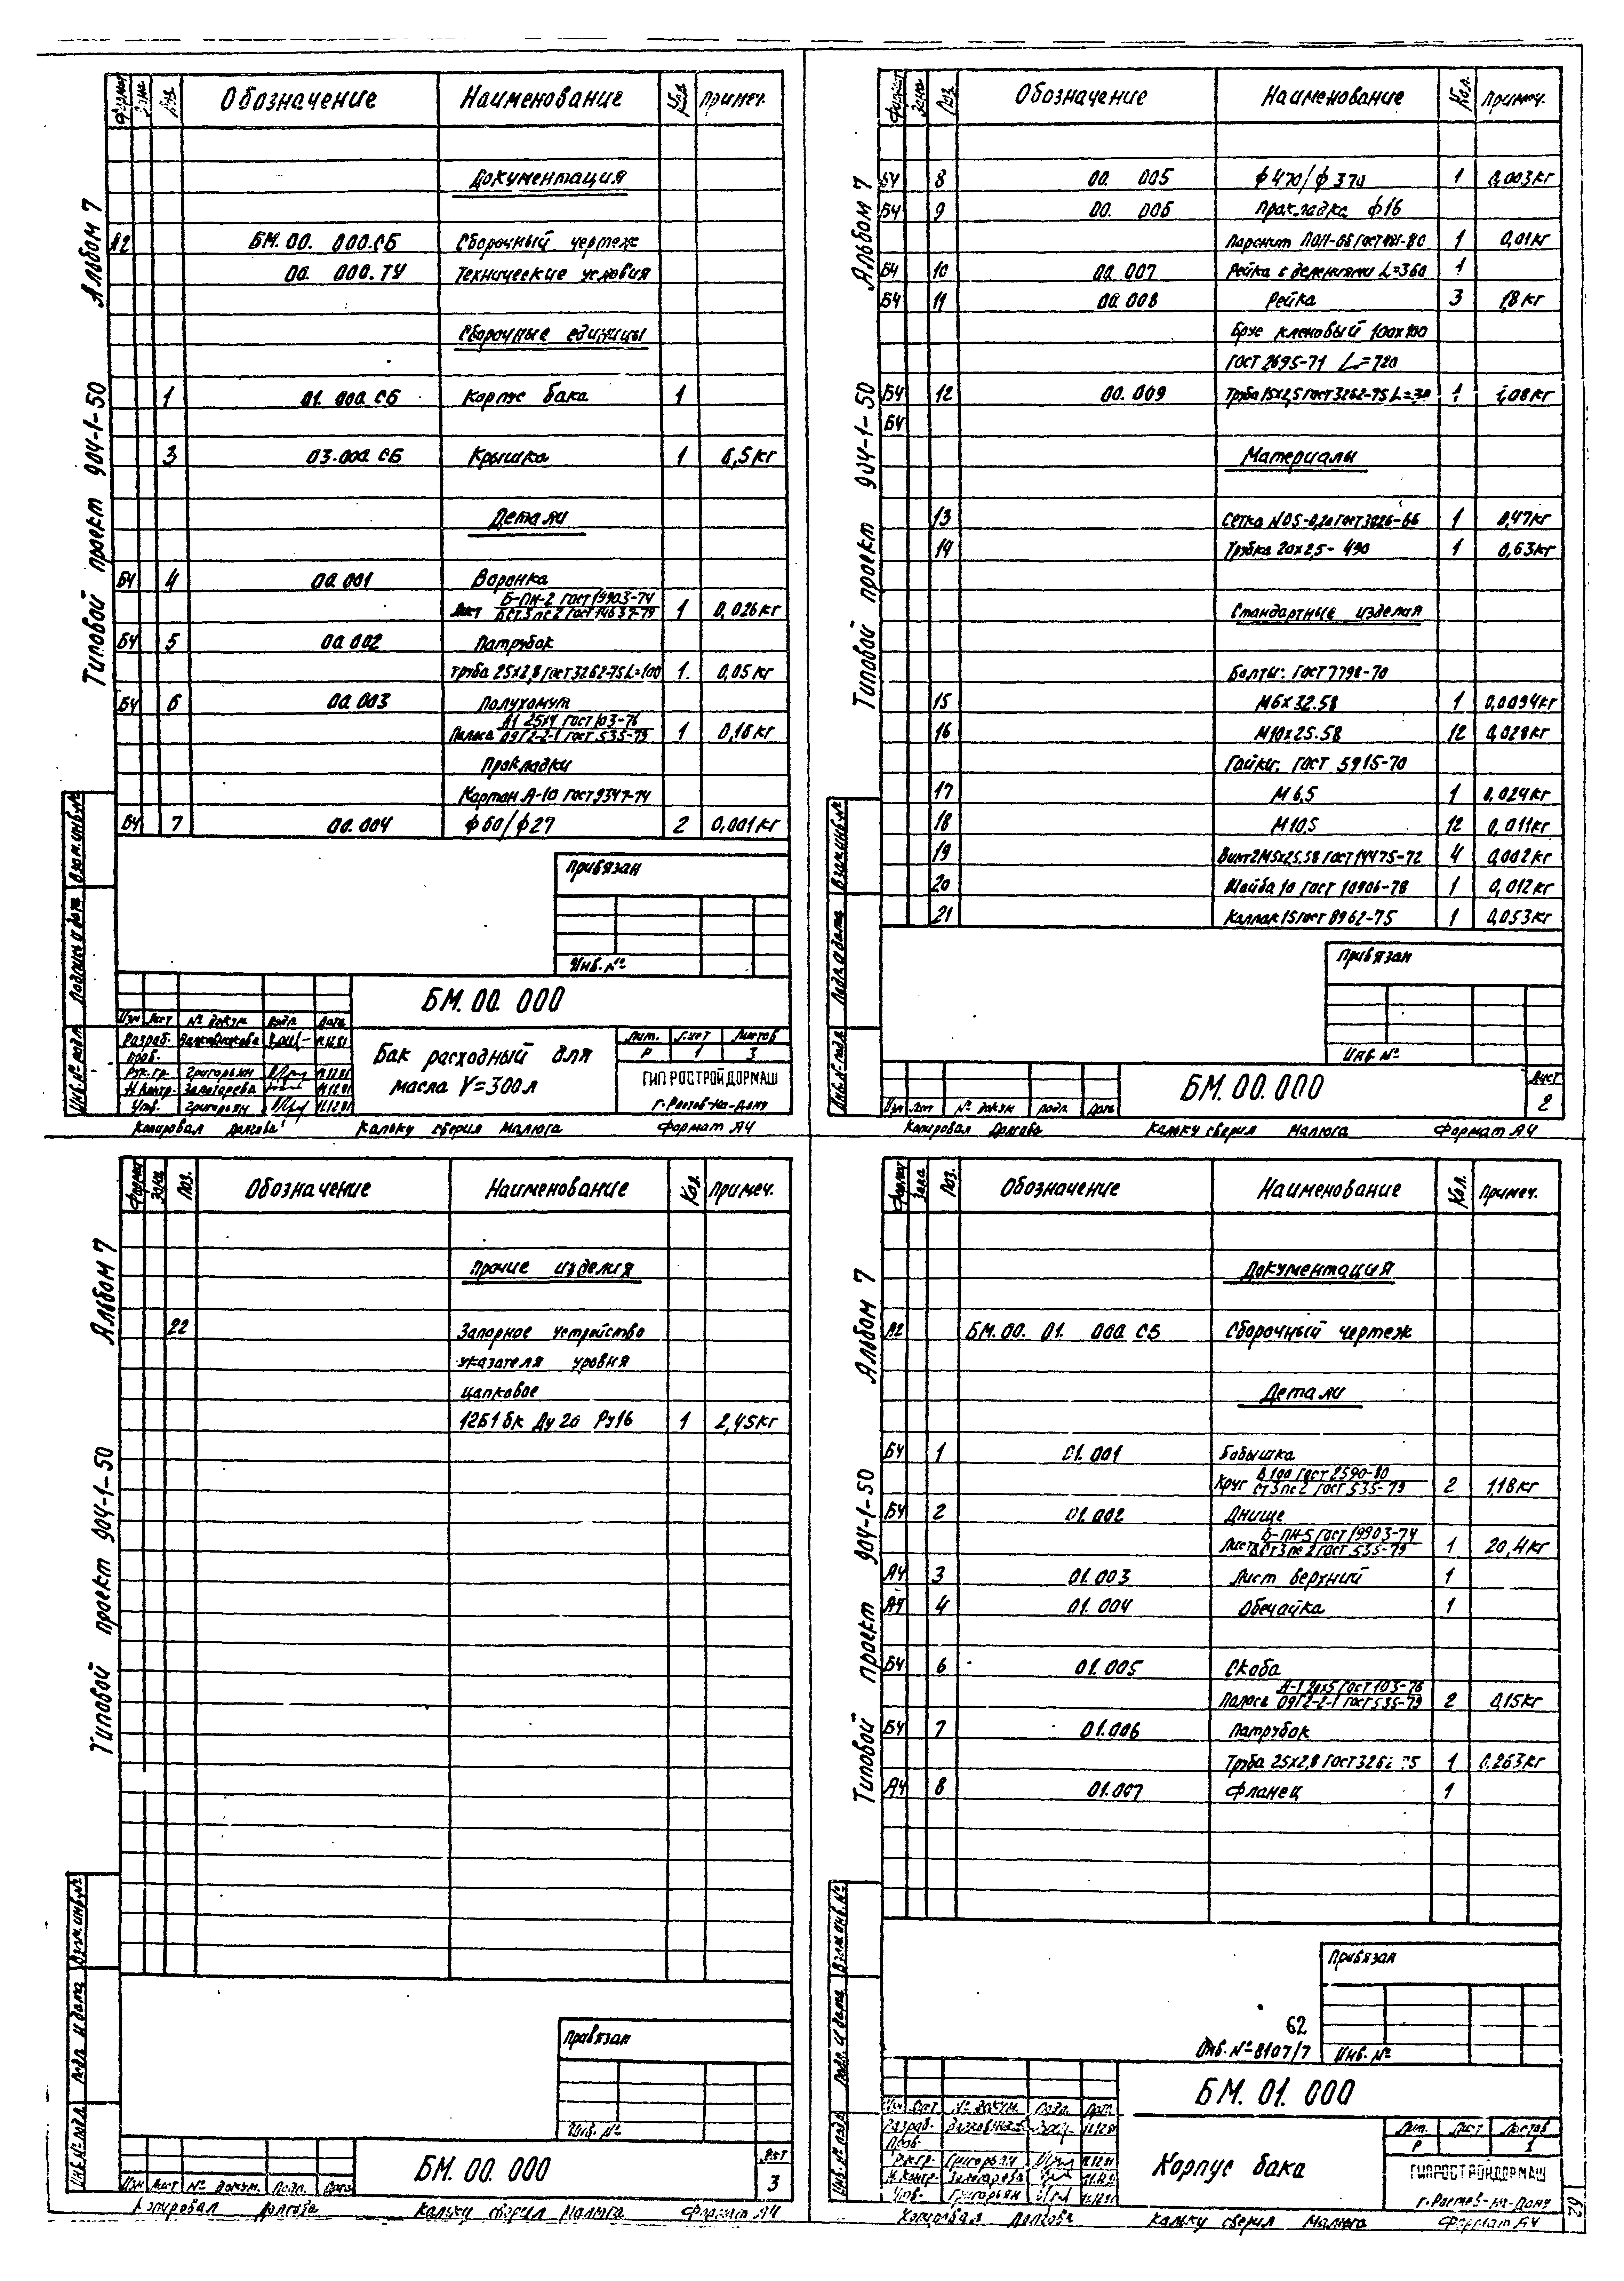 Альбом 7
Типовой проект 904-1-50
Формат Зона Поз. Обозначение Наименование Кол. Примеч.
Документация
А2 БМ.00. 000.СБ Сборочный чертеж
00. 000.ТУ Технические условия
Сборочные единицы
1 01. 000 СБ Корпус бака 1
3 03.000 СБ Крышка 1 6,5кг
Детали
БЧ 4 00.001 Воронка
Лист Б-ПН-2 ГОСТ 19903-74 / БСт.3пс2 ГОСТ 14637-79 1 0,026кг
БЧ 5 00.002 Патрубок
Труба 25х2,8 ГОСТ 3262-75 L=100 1 0,05кг
БЧ 6 00.003 Полухомут
Полоса А1 25х4 ГОСТ 103-76 / 09Г2-2-1 ГОСТ 535-79 1 0,16кг
Прокладки
Картон А-10 ГОСТ 9347-74
БЧ 7 00.004 ф60/ф27 2 0,001кг
Привязан
Инв.№
БМ.00. 000
Изм Лист № докум. Подп. Дата
Разраб. 11.12.81
Пров.
Рук.гр. Григорьян 11.12.81
Н.контр. Залотарева 11.12.81
Утв. Григорьян 11.12.81
Бак расходный для
масла V=300л
Лит. Лист Листов
Р 1 3
ГИПРОСТРОЙДОРМАШ
г.Ростов-на-Дону
Инв.№ подл. Подпись и дата Взам.инв.№
Копировал Долгова Кальку сверил Малюга Формат А4
Альбом 7
Типовой проект 904-1-50
Формат Зона Поз. Обозначение Наименование Кол. Примеч.
БЧ 8 00. 005 ф470/ф370 1 0,003кг
БЧ 9 00. 006 Прокладка ф16
Паронит ПОН-06 ГОСТ 481-80 1 0,01кг
БЧ 10 00.007 Рейка с делениями L=360 1
БЧ 11 00.008 Рейка 3 1,8кг
Брус кленовый 100х100
ГОСТ 2695-71 L=720
БЧ 12 00.009 Труба 15х2,5 ГОСТ 3262-75 L=30 1 1,08кг
БЧ
Материалы
13 Сетка №05-0,20 ГОСТ 3826-66 1 0,47кг
14 Трубка 20х2,5- 490 1 0,63кг
Стандартные изделия
Болты: ГОСТ 7798-70
15 М6х32.58 1 0,0094кг
16 М10х25.58 12 0,028кг
Гайки: ГОСТ 5915-70
17 М6,5 1 0,024кг
18 М10,5 12 0,011кг
19 Винт 2М5х25.58 ГОСТ 14475-72 4 0,002кг
20 Шайба 10 ГОСТ 10906-78 1 0,012кг
21 Колпак 15 ГОСТ 8962-75 1 0,053кг
Привязан
Инв №
БМ.00.000
Лист
2
Изм Лист № докум подп. Дата
Инв.№ подл. Подп. и дата Взам.инв.№
Копировал Долгова Кальку сверил Малюга Формат А4
Альбом 7
Типовой проект 904-1-50
Формат Зона Поз. Обозначение Наименование Кол. Примеч.
Прочие изделия
22 Запорное устройство
указателя уровня
цапковое
12Б1бк Ду 20 Ру16 1 2,45кг
Привязан
Инв.№
БМ.00. 000
Лист
3
Изм Лист № докум. Подп. Дата
Инв.№ подл. Подп. и дата Взам.инв.№
Копировал Долгова Кальку сверил Малюга Формат А4
Альбом 7
Типовой проект 904-1-50
Формат Зона Поз. Обозначение Наименование Кол. Примеч.
Документация
А2 БМ.00. 01. 000 СБ Сборочный чертеж
Детали
БЧ 1 01.001 Бобышка
Круг В100 ГОСТ 2590-80 / Ст3пс2 ГОСТ 535-79 2 1,18кг
БЧ 2 01.002 Днище
Лист Б-ПН-5 ГОСТ 19903-74 / ВСт3пс2 ГОСТ 535-79 1 20,4кг
А4 3 01.003 Лист верхний 1
А4 4 01.004 Обечайка 1
БЧ 6 01.005 Скоба
Полоса А-1 20х5 ГОСТ 103-76 / 09Г2-2-1 ГОСТ 535-79 2 0,15кг
БЧ 7 01.006 Патрубок
Труба 25х2,8 ГОСТ 3262-75 1 0,263кг
А4 8 01.007 Фланец 1
62
Инв.№8107/7
Привязан
Инв.№
БМ. 01. 000
Изм Лист № докум. Подп. Дата
Разраб. 11.12.81
Пров.
Рук.гр. Григорьян 11.12.81
Н.контр. Залотарева
Утв. Григорьян
Корпус бака
Лит. Лист Листов
Р 1
ГИПРОСТРОЙДОРМАШ
г.Ростов-на-Дону
Инв.№ подл. Подп. и дата Взам.инв.№
Копировал Долгова Кальку сверил Малюга Формат А4